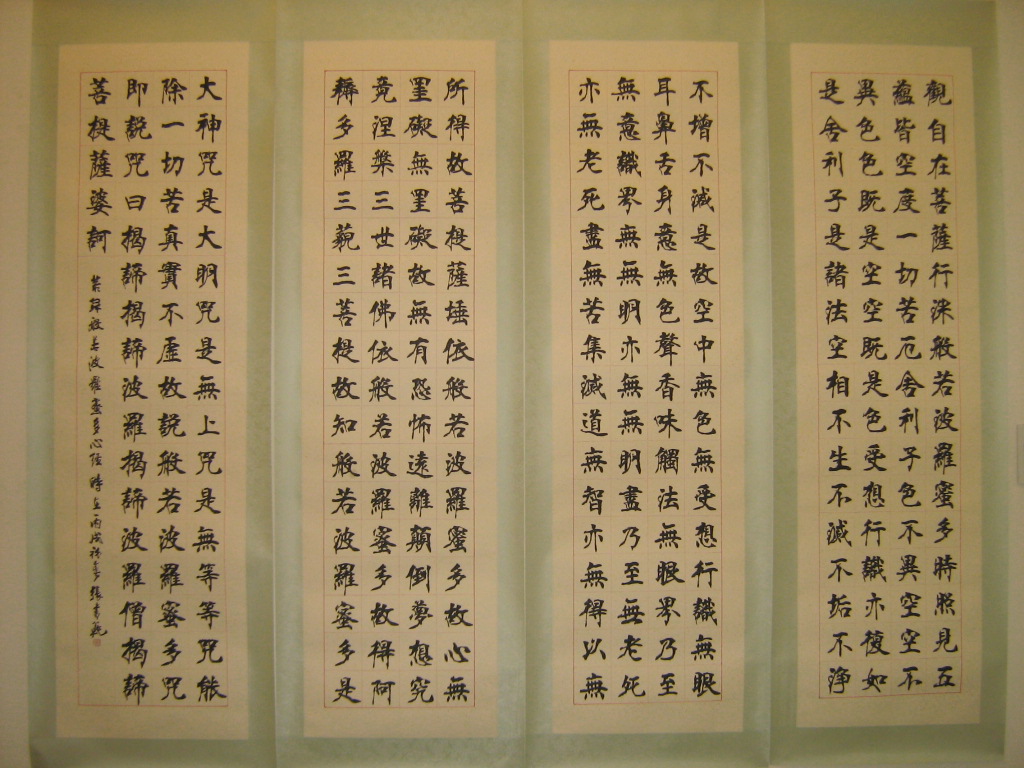 觀自在菩薩行深般若波羅蜜多時照見五
蘊皆空度一切苦厄舍利子色不異空空不
異色色既是空空既是色受想行識亦復如
是舍利子是諸法空相不生不滅不垢不淨
不增不減是故空中無色無受想行識無眼
耳鼻舌身意無色聲香味觸法無眼界乃至
無意識界無無明亦無無明盡乃至無老死
亦無老死盡無苦集滅道無智亦無得以無
所得故菩提薩埵依般若波羅蜜多故心無
罣礙無罣礙故無有恐怖遠離顛倒夢想究
竟涅槃三世諸佛依般若波羅蜜多故得阿
耨多羅三藐三菩提故知般若波羅蜜多是
大神咒是大明咒是無上咒是無等等咒能
除一切苦真實不虛故說般若波羅蜜多咒
即說咒曰揭諦揭諦波羅揭諦波羅僧揭諦
菩提薩婆訶
般若波羅蜜多心經 時在丙戌